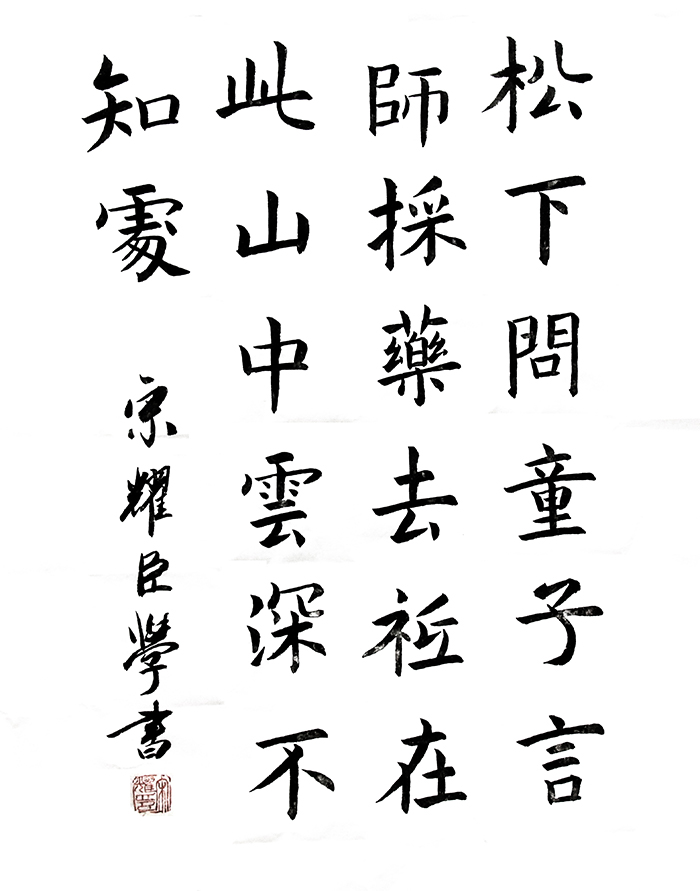 松下問童子言
師採藥去祗在
此山中雲深不
知處
宋耀臣學書